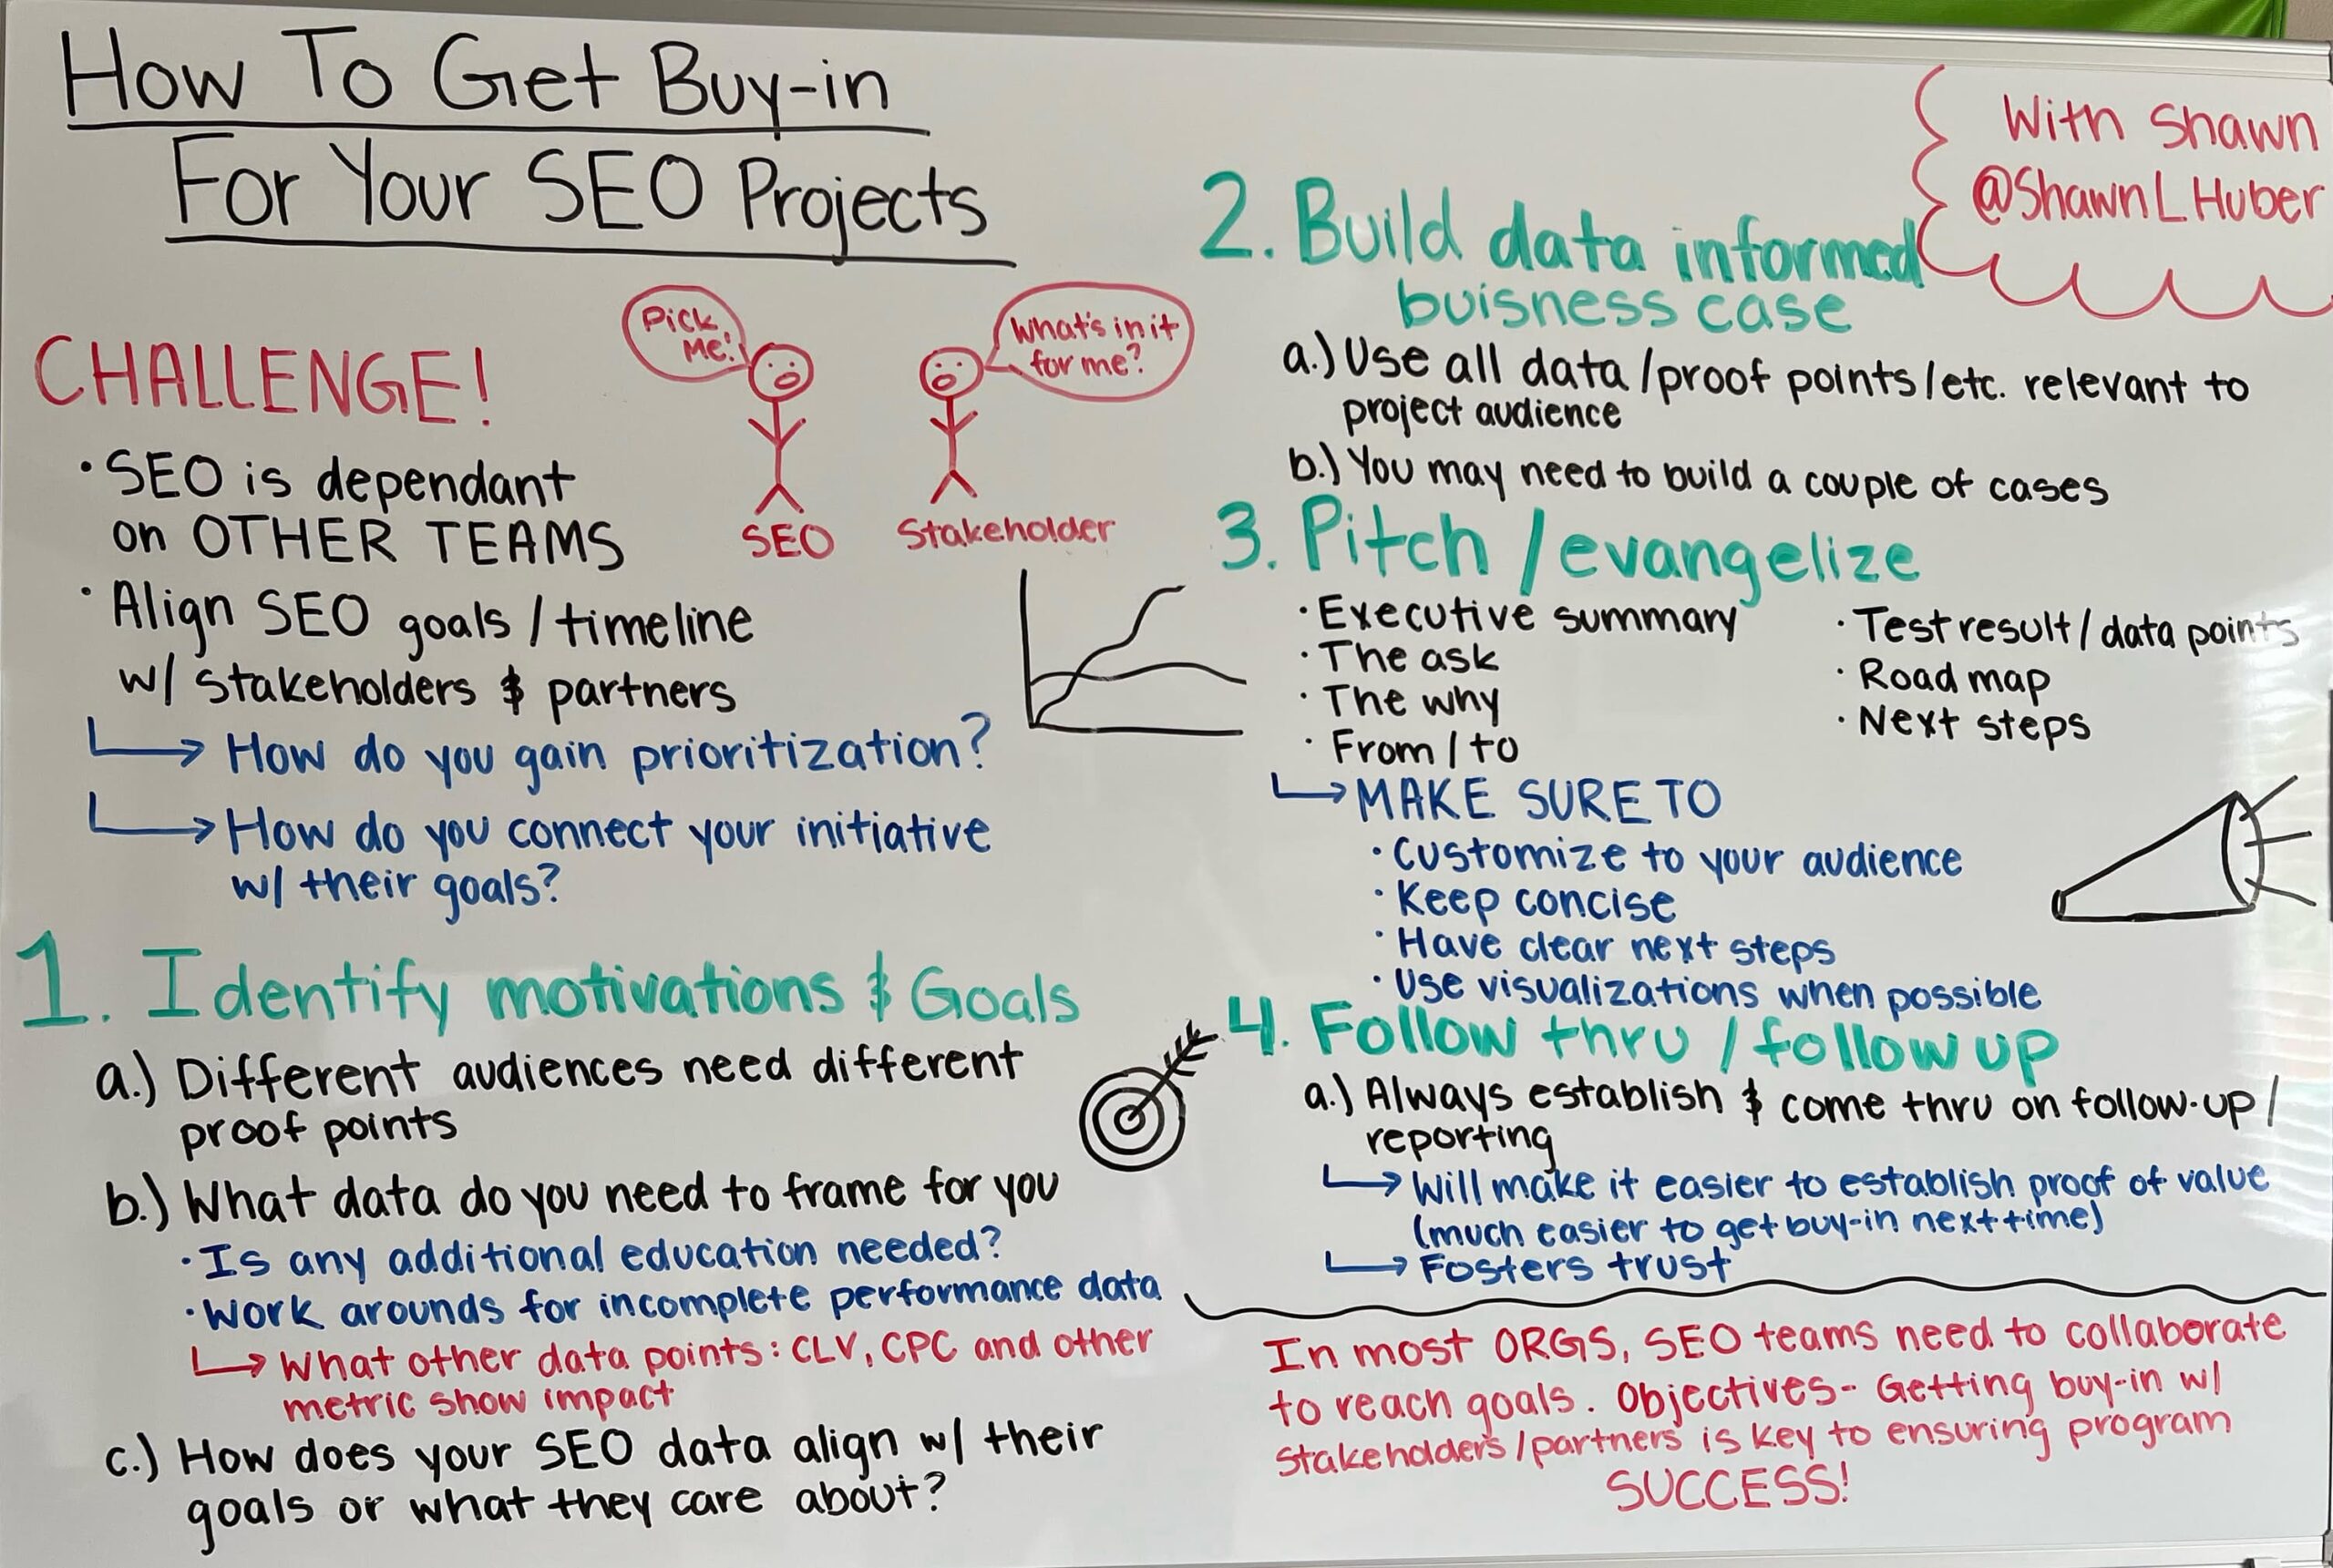 How To Get Buy-in
For Your SEO Projects
With Shawn
@ShawnLHuber
CHALLENGE!
Pick
Me!
What's in it
for me?
SEO
Stakeholder
· SEO is dependant
on OTHER TEAMS
· Align SEO goals / timeline
w/ stakeholders & partners
↳ How do you gain prioritization?
↳ How do you connect your initiative
w/ their goals?
1. Identify motivations & Goals
a.) Different audiences need different
proof points
b.) What data do you need to frame for you
· Is any additional education needed?
· Work arounds for incomplete performance data
↳ What other data points: CLV, CPC and other
metric show impact
c.) How does your SEO data align w/ their
goals or what they care about?
2. Build data informed
buisness case
a.) Use all data /proof points/etc. relevant to
project audience
b.) You may need to build a couple of cases
3. Pitch / evangelize
· Executive summary
· The ask
· The why
· From / to
· Test result / data points
· Road map
· Next steps
↳ MAKE SURE TO
· Customize to your audience
· Keep concise
· Have clear next steps
· Use visualizations when possible
4. Follow thru / follow up
a.) Always establish & come thru on follow-up /
reporting
↳ Will make it easier to establish proof of value
(much easier to get buy-in next time)
↳ Fosters trust
In most ORGS, SEO teams need to collaborate
to reach goals. Objectives- Getting buy-in w/
stakeholders /partners is key to ensuring program
SUCCESS!